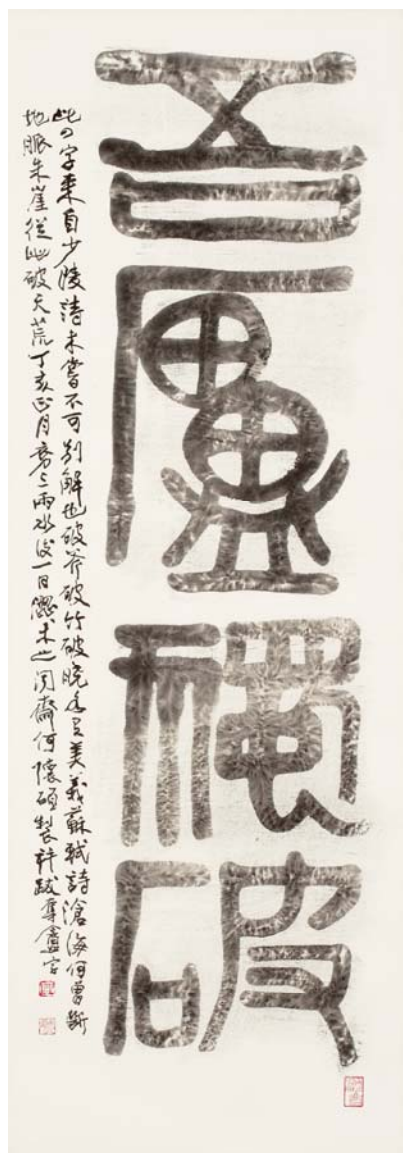 吾廬獨破
此四字來自少陵詩未嘗不可別解也破斧破竹破曉美義蘇軾詩滄海何曾斷
地脈朱崖從此破天荒丁亥正月三雨水後一日何懷碩製并跋